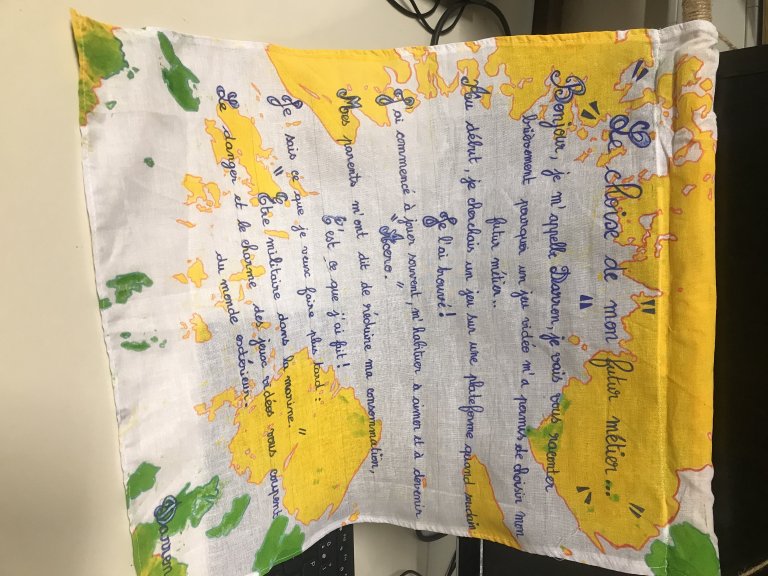 " Le choix de mon futur métier... "
Bonjour, je m'appelle Darron, je vais vous raconter
brièvement pourquoi un jeu vidéo m'a permis de choisir mon
futur métier..
Au début, je cherchais un jeu sur une plateforme quand soudain
Je l'ai trouvé!
J'ai commencé à jouer souvent, m'habituer à aimer et à devenir
"Accro."
Mes parents m'ont dit de réduire ma consommation,
C'est ce que j'ai fait!
Je sais ce que je veux faire plus tard:
"Être militaire dans la marine."
Le danger et le charme des jeux vidéos vous coupent
du monde extérieur.
Darron